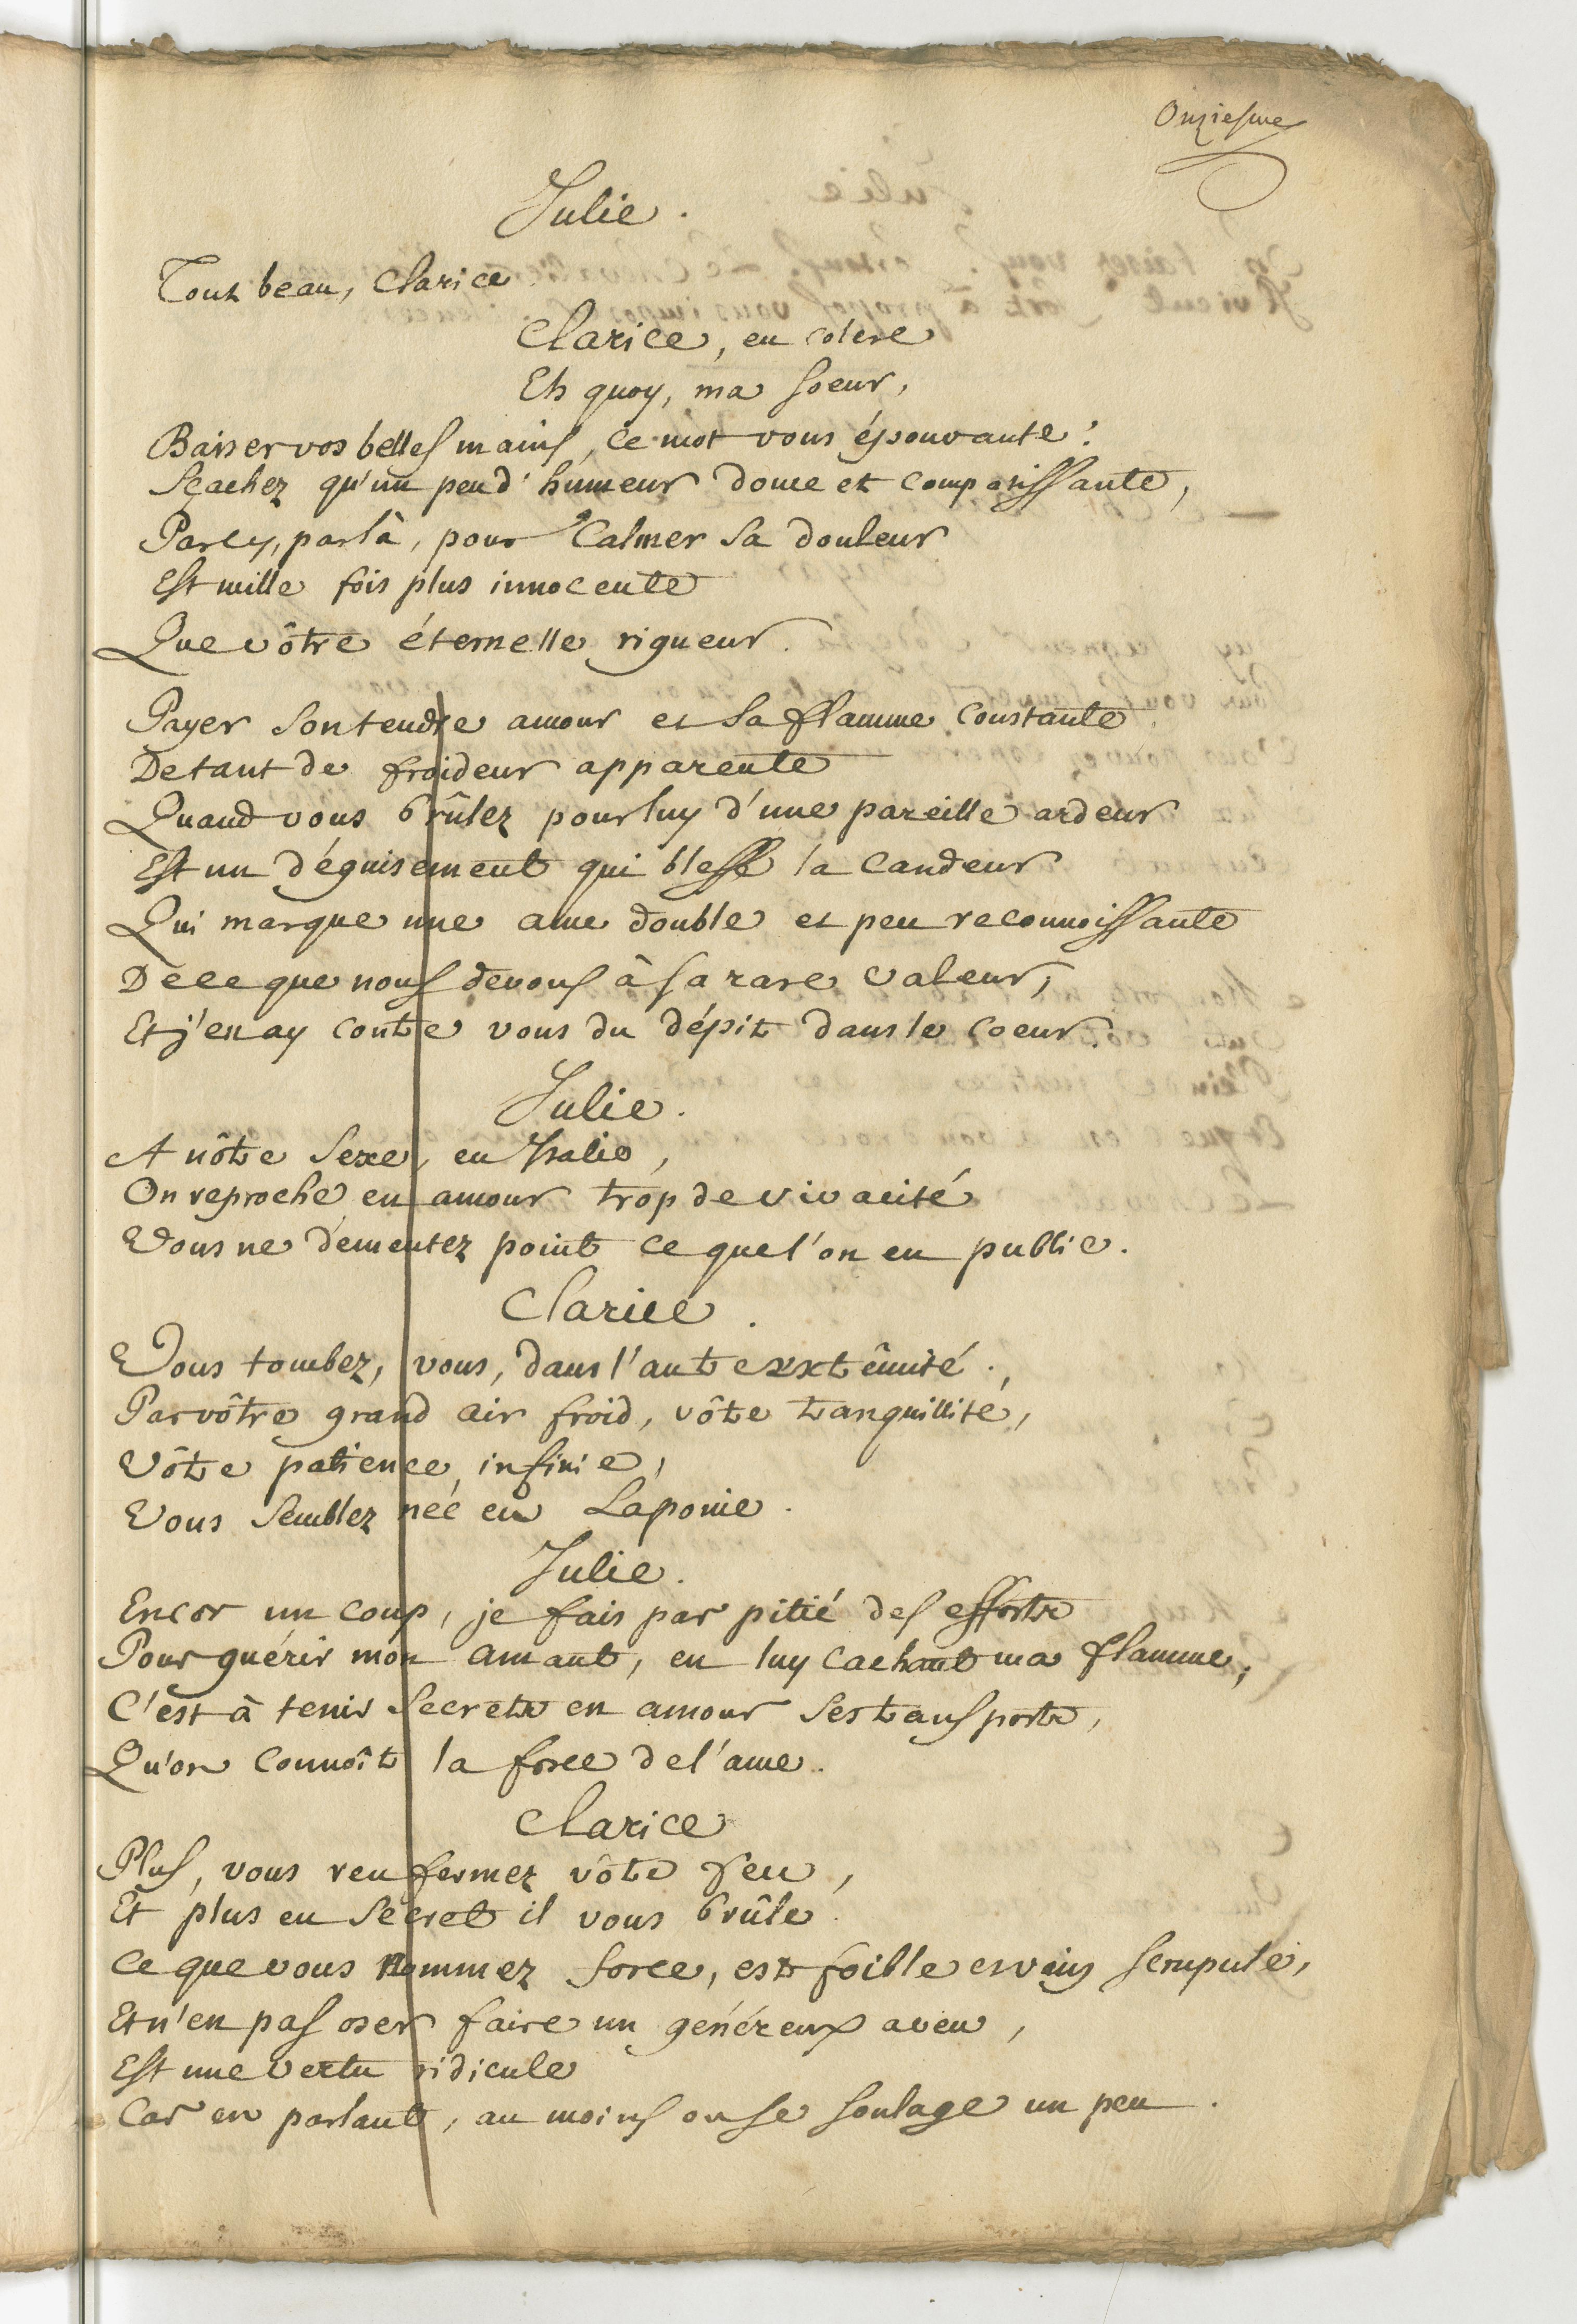 Onziesme
Julie.
Tout beau, Clarice
Clarice, en colere
Eh quoy, ma soeur,
Baiser vos belles mains, ce mot vous épouvante?
Sçachez qu'un peu d'humeur douce et compatissante,
Par cy, par là, pour calmer sa douleur
Est mille fois plus innocente
Que vôtre éternelle rigueur.
Payer son tendre amour et sa flamme constante
De tant de froideur apparente
Quand vous brûlez pour luy d'une pareille ardeur
Est un déguisement qui blesse la candeur
Qui marque une ame double et peu reconnoissante
De ce que nous devons à sa rare valeur,
Et j'en ay contre vous du dépit dans le coeur.
Julie.
A nôtre sexe, en Italie,
On reproche en amour trop de vivacité
Vous ne démentez point ce que l'on en publie.
Clarice.
Vous tombez, vous, dans l'autre extrêmité,
Par vôtre grand air froid, vôtre tranquillité,
Vôtre patience infinie,
Vous semblez née en Laponie.
Julie.
Encor un coup, je fais par pitié des efforts
Pour guérir mon amant, en luy cachant ma flamme,
C'est à tenir secrets en amour ses transports,
Qu'on connoît la force de l'ame.
Clarice
Plus, vous renfermez vôtre feu,
Et plus en secret il vous brûle.
Ce que vous nommez force, est foible et vain scrupule,
Et n'en pas oser faire un généreux aveu,
Est une vertu ridicule
Car en parlant, au moins on se soulage un peu.